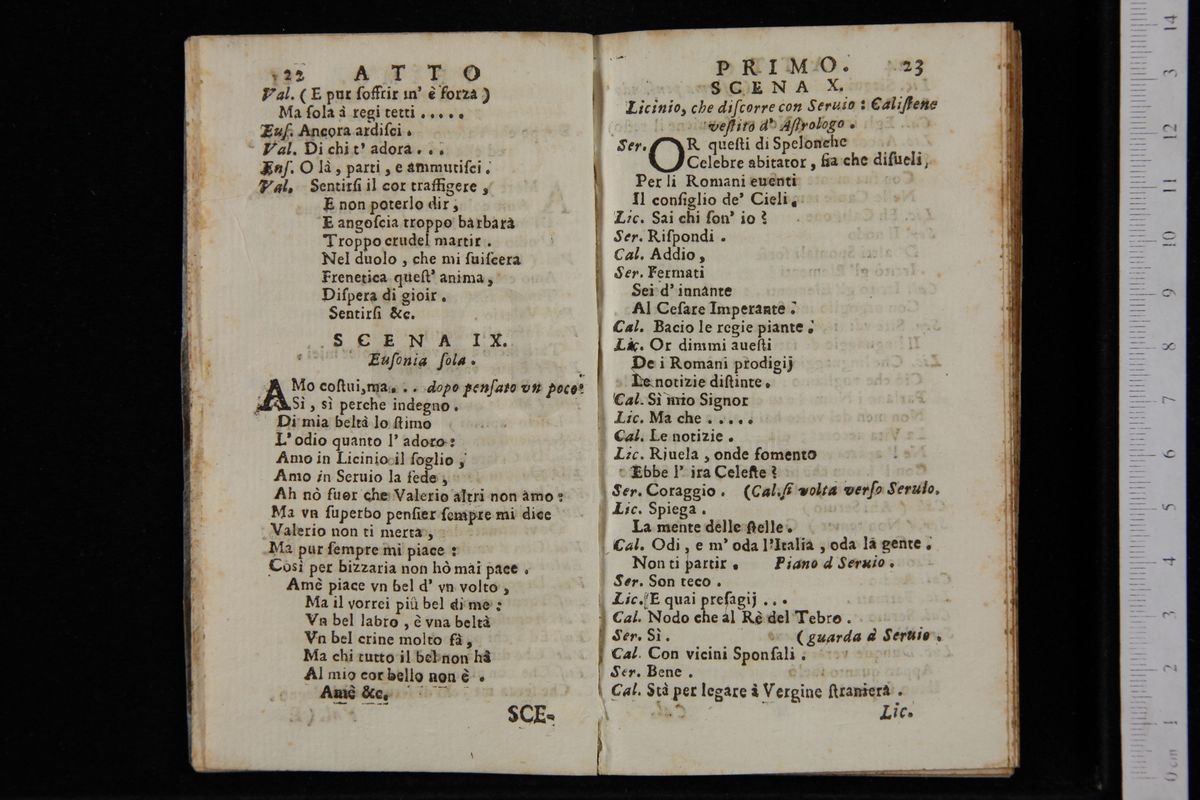 22 ATTO
Val. (E pur soffrir m' è forza)
Ma sola à regi tetti .....
Eus. Ancora ardisci.
Val. Di chi t' adora...
Eus. O là, parti, e ammutisci.
Val. Sentirsi il cor traffigere,
E non poterlo dir,
E angoscia troppo barbara
Troppo crudel martir.
Nel duolo, che mi suiscera
Frenetica quest' anima,
Dispera di gioir.
Sentirsi &c.
SCENA IX.
Eusonia sola.
AMo costui, ma... dopo pensato vn poco
Sì, sì perche indegno.
Di mia beltà lo stimo
L' odio quanto l' adoro:
Amo in Licinio il soglio,
Amo in Seruio la fede,
Ah nò fuor che Valerio altri non amo:
Ma vn superbo pensier sempre mi dice
Valerio non ti merta,
Ma pur sempre mi piace:
Così per bizzaria non hò mai pace.
Amè piace vn bel d' vn volto,
Ma il vorrei più bel di me:
Vn bel labro, è vna beltà
Vn bel crine molto fà,
Ma chi tutto il bel non hà
Al mio cor bello non è.
Amè &c.
SCE-
PRIMO. 23
SCENA X.
Licinio, che discorre con Seruio: Calistene
vestito d' Astrologo.
Ser. OR questi di Spelonche
Celebre abitator, fia che disueli,
Per li Romani euenti
Il consiglio de' Cieli.
Lic. Sai chi son' io?
Ser. Rispondi.
Cal. Addio,
Ser. Fermati
Sei d' innante
Al Cesare Imperante.
Cal. Bacio le regie piante.
Lic. Or dimmi auesti
De i Romani prodigij
Le notizie distinte.
Cal. Sì mio Signor
Lic. Ma che .....
Cal. Le notizie.
Lic. Riuela, onde fomento
Ebbe l' ira Celeste?
Ser. Coraggio. (Cal. si volta verso Seruio.
Lic. Spiega.
La mente delle stelle.
Cal. Odi, e m' oda l'Italia, oda la gente.
Non ti partir. Piano à Seruio.
Ser. Son teco.
Lic. E quai presagij...
Cal. Nodo che al Rè del Tebro.
Ser. Sì. (guarda à Seruio.
Cal. Con vicini Sponsali.
Ser. Bene.
Cal. Stà per legare à Vergine straniera.
Lic.
14
13
12
11
10
9
8
7
6
5
4
3
2
1
0 cm